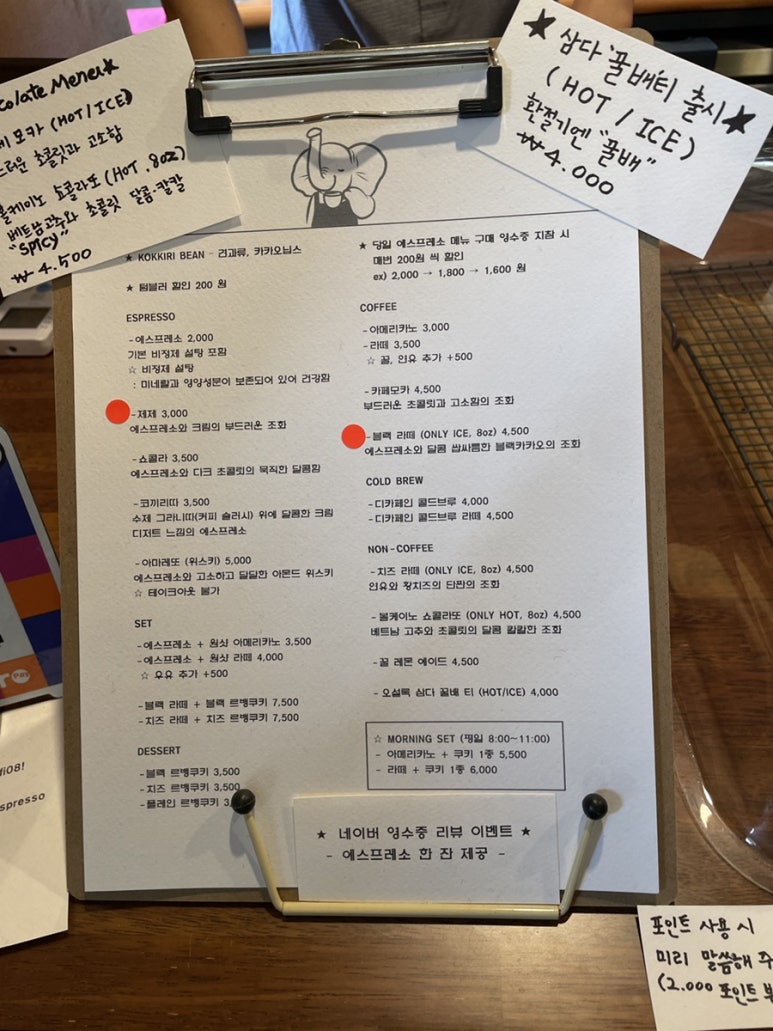 Menu★
모카 (HOT/ICE)
초콜릿과 고소함
쇼콜라또 (HOT, 8oz)
베트남고추와 초콜릿 달콤·칼칼
"SPICY"
₩4.500
★ 삼다 꿀배티 출시 ★
(HOT / ICE)
환절기엔 "꿀배"
₩4.000
★ KOKKIRI BEAN - 견과류, 카카오닙스
★ 텀블러 할인 200 원
ESPRESSO
-에스프레소 2,000
기본 비정제 설탕 포함
☆ 비정제 설탕
: 미네랄과 영양성분이 보존되어 있어 건강함
-제제 3,000
에스프레소와 크림의 부드러운 조화
-쇼콜라 3,500
에스프레소와 다크 초콜릿의 묵직한 달콤함
-코끼리따 3,500
수제 그라니따(커피 슬러시) 위에 달콤한 크림
디저트 느낌의 에스프레소
-아마레또 (위스키) 5,000
에스프레소와 고소하고 달달한 아몬드 위스키
☆ 테이크아웃 불가
SET
-에스프레소 + 원샷 아메리카노 3,500
-에스프레소 + 원샷 라떼 4,000
☆ 우유 추가 +500
-블랙 라떼 + 블랙 르뱅쿠키 7,500
-치즈 라떼 + 치즈 르뱅쿠키 7,500
DESSERT
-블랙 르뱅쿠키 3,500
-치즈 르뱅쿠키 3,500
-플레인 르뱅쿠키
★ 당일 에스프레소 메뉴 구매 영수증 지참 시
매번 200원 씩 할인
ex) 2,000 → 1,800 → 1,600 원
COFFEE
-아메리카노 3,000
-라떼 3,500
☆ 꿀, 연유 추가 +500
-카페모카 4,500
부드러운 초콜릿과 고소함의 조화
-블랙 라떼 (ONLY ICE, 8oz) 4,500
에스프레소와 달콤 쌉싸름한 블랙카카오의 조화
COLD BREW
-디카페인 콜드브루 4,000
-디카페인 콜드브루 라떼 4,500
NON-COFFEE
-치즈 라떼 (ONLY ICE, 8oz) 4,500
연유와 황치즈의 단짠의 조화
-볼케이노 쇼콜라또 (ONLY HOT, 8oz) 4,500
베트남 고추와 초콜릿의 달콤 칼칼한 조화
-꿀 레몬 에이드 4,500
-오설록 삼다 꿀배 티 (HOT/ICE) 4,000
☆ MORNING SET (평일 8:00~11:00)
- 아메리카노 + 쿠키 1종 5,500
- 라떼 + 쿠키 1종 6,000
★ 네이버 영수증 리뷰 이벤트 ★
- 에스프레소 한 잔 제공 -
Pay
포인트 사용 시
미리 말씀해
(2.000 포인트